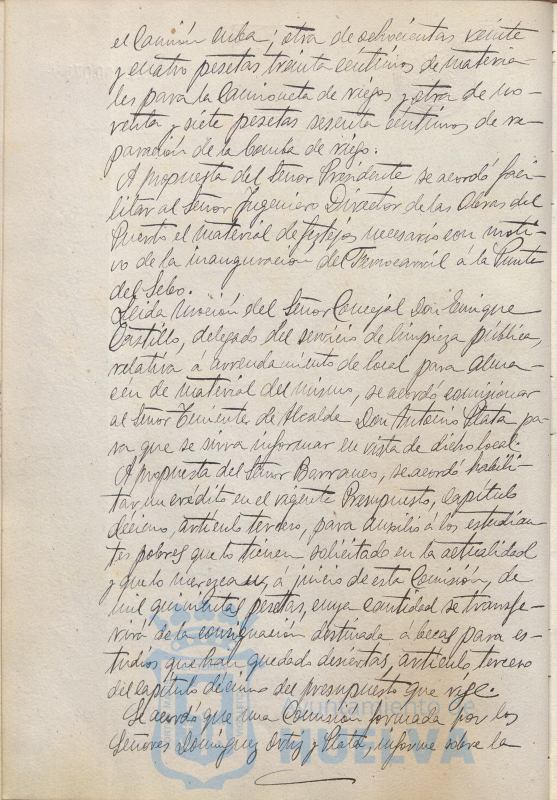 el Camión cuba; otra de ochocientas veinte
y cuatro pesetas treinta céntimos de materia-
les para la Camioneta de riegos y otra de no-
venta y siete pesetas sesenta céntimos de re-
paración de la bomba de riego.
A propuesta del Señor Presidente se acordó faci-
litar al Señor Ingeniero Director de las Obras del
Puerto el material de festejos necesario con moti-
vo de la inauguración del Ferrocarril a la Punta
del Sebo.
Leída moción del Señor Concejal Don Enrique
Castillo, delegado del servicio de limpieza pública,
relativa á arrendamiento de local para alma-
cén de material del mismo, se acordó comisionar
al Señor Teniente de Alcalde Don Antonio Plata pa-
ra que se sirva informar en vista de dicho local.
A propuesta del Señor Barranco, se acordó habili-
tar un crédito en el vigente Presupuesto, Capítulo
décimo, artículo tercero, para auxilio á los estudian-
tes pobres que lo tienen solicitado en la actualidad
y que lo merezcan, á juicio de esta Comisión, de
mil quinientas pesetas, cuya cantidad se transfe-
rirá de la consignación destinada á becas para es-
tudios que han quedado desiertas, artículo tercero
del capítulo décimo del presupuesto que rige.
Se acordó que una Comisión formada por los
Señores Domínguez Ortiz y Plata, informe sobre la
Ayuntamiento de
HUELVA